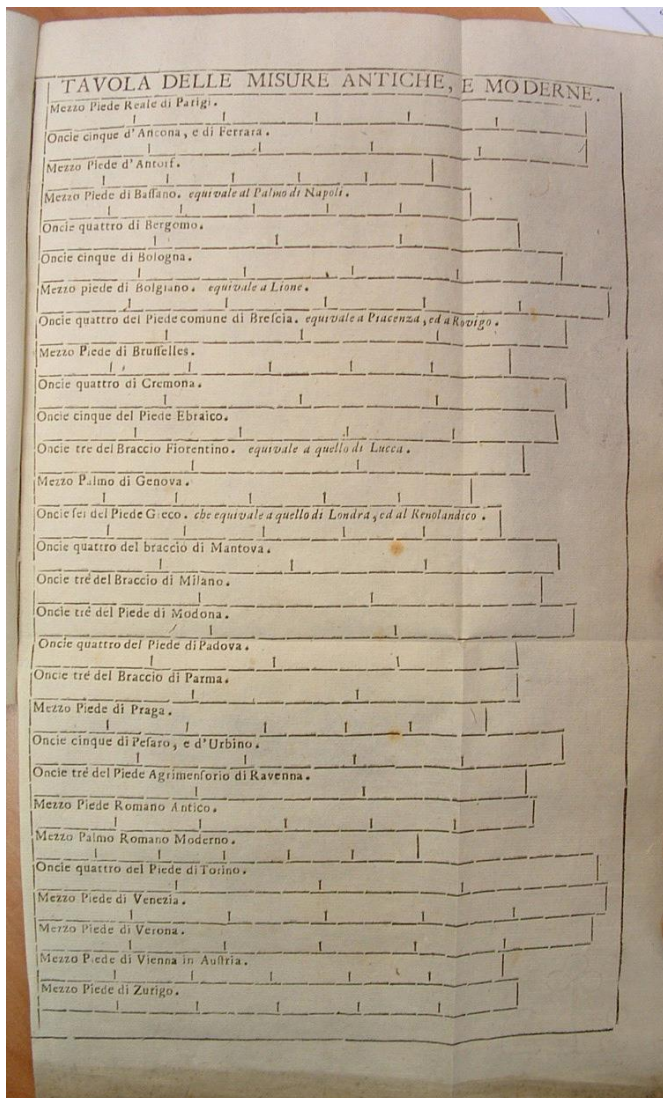 TAVOLA DELLE MISURE ANTICHE, E MODERNE.
Mezzo Piede Reale di Parigi.
Oncie cinque d'Ancona, e di Ferrara.
Mezzo Piede d'Antorf.
Mezzo Piede di Baſſano. equivale al Palmo di Napoli.
Oncie quattro di Bergomo.
Oncie cinque di Bologna.
Mezzo piede di Bolgiano. equivale a Lione.
Oncie quattro del Piede comune di Breſcia. equivale a Piacenza, ed a Rovigo.
Mezzo Piede di Bruſſelles.
Oncie quattro di Cremona.
Oncie cinque del Piede Ebraico.
Oncie tre del Braccio Fiorentino. equivale a quello di Lucca.
Mezzo Palmo di Genova.
Oncie ſei del Piede Greco. che equivale a quello di Londra, ed al Renolandico.
Oncie quattro del braccio di Mantova.
Oncie tré del Braccio di Milano.
Oncie tré del Piede di Modona.
Oncie quattro del Piede di Padova.
Oncie tré del Braccio di Parma.
Mezzo Piede di Praga.
Oncie cinque di Peſaro, e d'Urbino.
Oncie tré del Piede Agrimenſorio di Ravenna.
Mezzo Piede Romano Antico.
Mezzo Palmo Romano Moderno.
Oncie quattro del Piede di Torino.
Mezzo Piede di Venezia.
Mezzo Piede di Verona.
Mezzo Piede di Vienna in Auſtria.
Mezzo Piede di Zurigo.